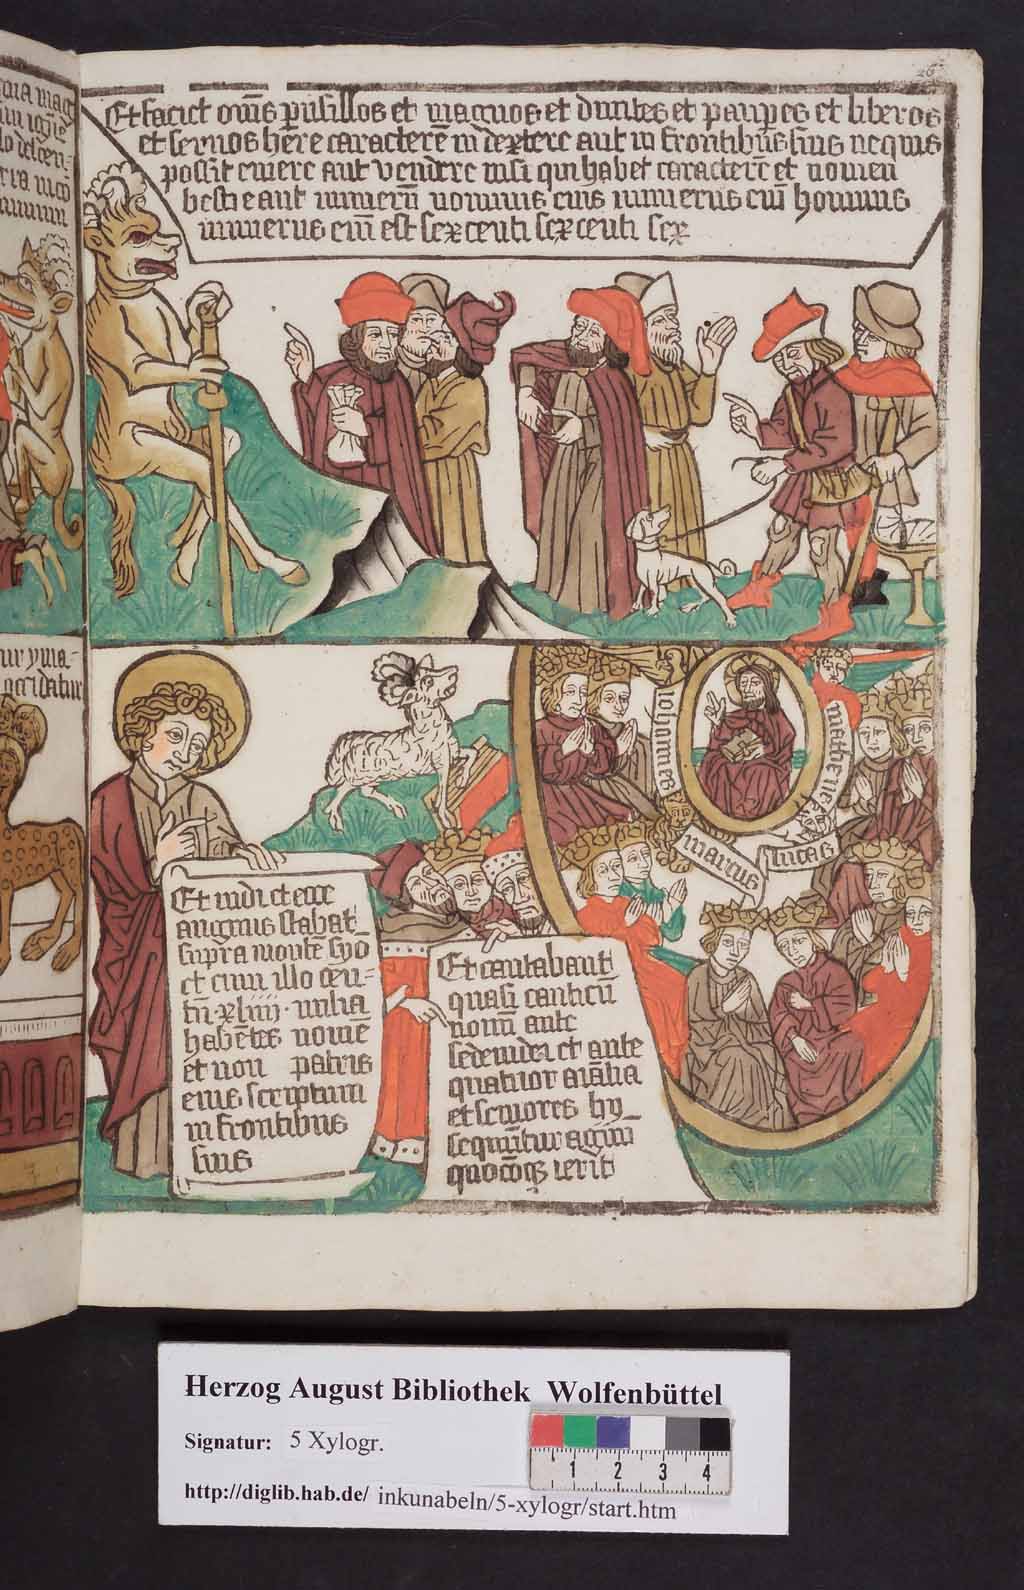 26
Et faciet om̄s pusillos et magnos et diuites et pauꝑes et liberos
et seruos h̄ere caracterē in dextere aut in frontibus suis ne quis
possit emere aut vendere nisi qui habet caracterē et nomen
bestie aut numerū nominis eius numerus em̄ hominis
numerus em̄ est sexcenti sexcenti sex
Iohannes
matheus
marcus
lucas
Et uidi et ecce
angnus stabat
supra montē syo
et cum illo cen-
tū · xliiii · milia
habētes nomē
et non patris
eius scriptum
in frontibus
suis
Et cantabant
quasi canticū
nouū ante
sedem dei et ante
quatuor aīalia
et seniores hy
sequūtur agnū
quocōqꝫ ierit
Herzog August Bibliothek Wolfenbüttel
Signatur: 5 Xylogr.
1 2 3 4
http://diglib.hab.de/ inkunabeln/5-xylogr/start.htm